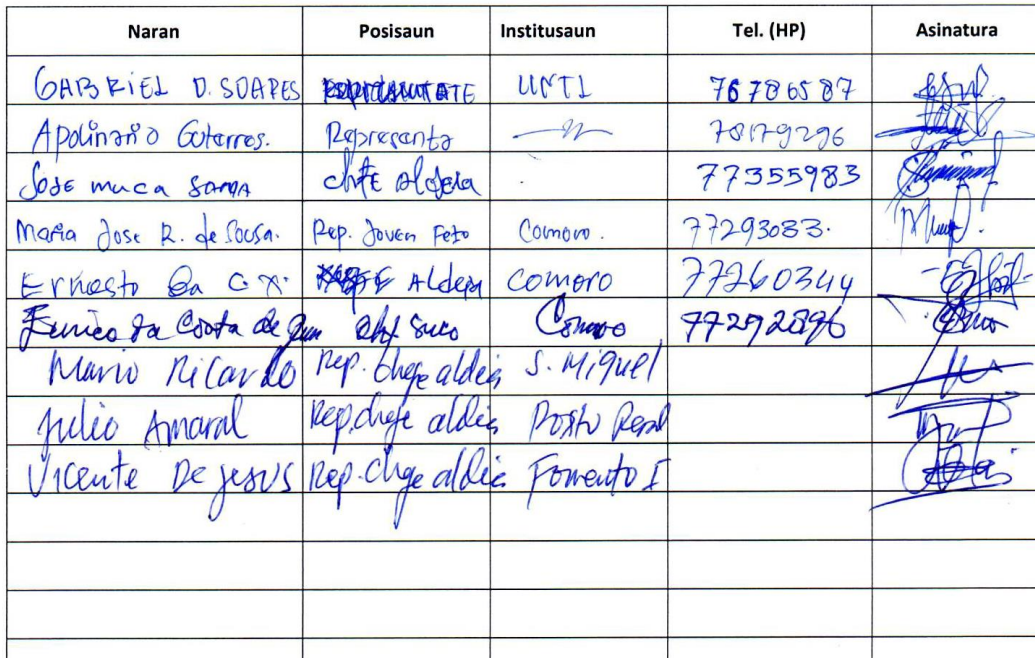 Naran Posisaun Institusaun Tel. (HP) Asinatura
GABRIEL D. SOARES UNTL 76786587
Apolinario Guterres. Representa 78179296
Jose muca chefe aldeia 77355983
Maria Jose R. de Sousa. Rep. Joven Feto Comoro. 77293083.
Ernesto Da C. X. Aldeia comoro 77260344
da Costa de chef Suco Comoro 77292896
Mario Ricardo Rep. chefe aldeia S. Miguel
Julio Amaral Rep. chefe aldeia
Vicente De jesus Rep. chefe aldeia Fomento I